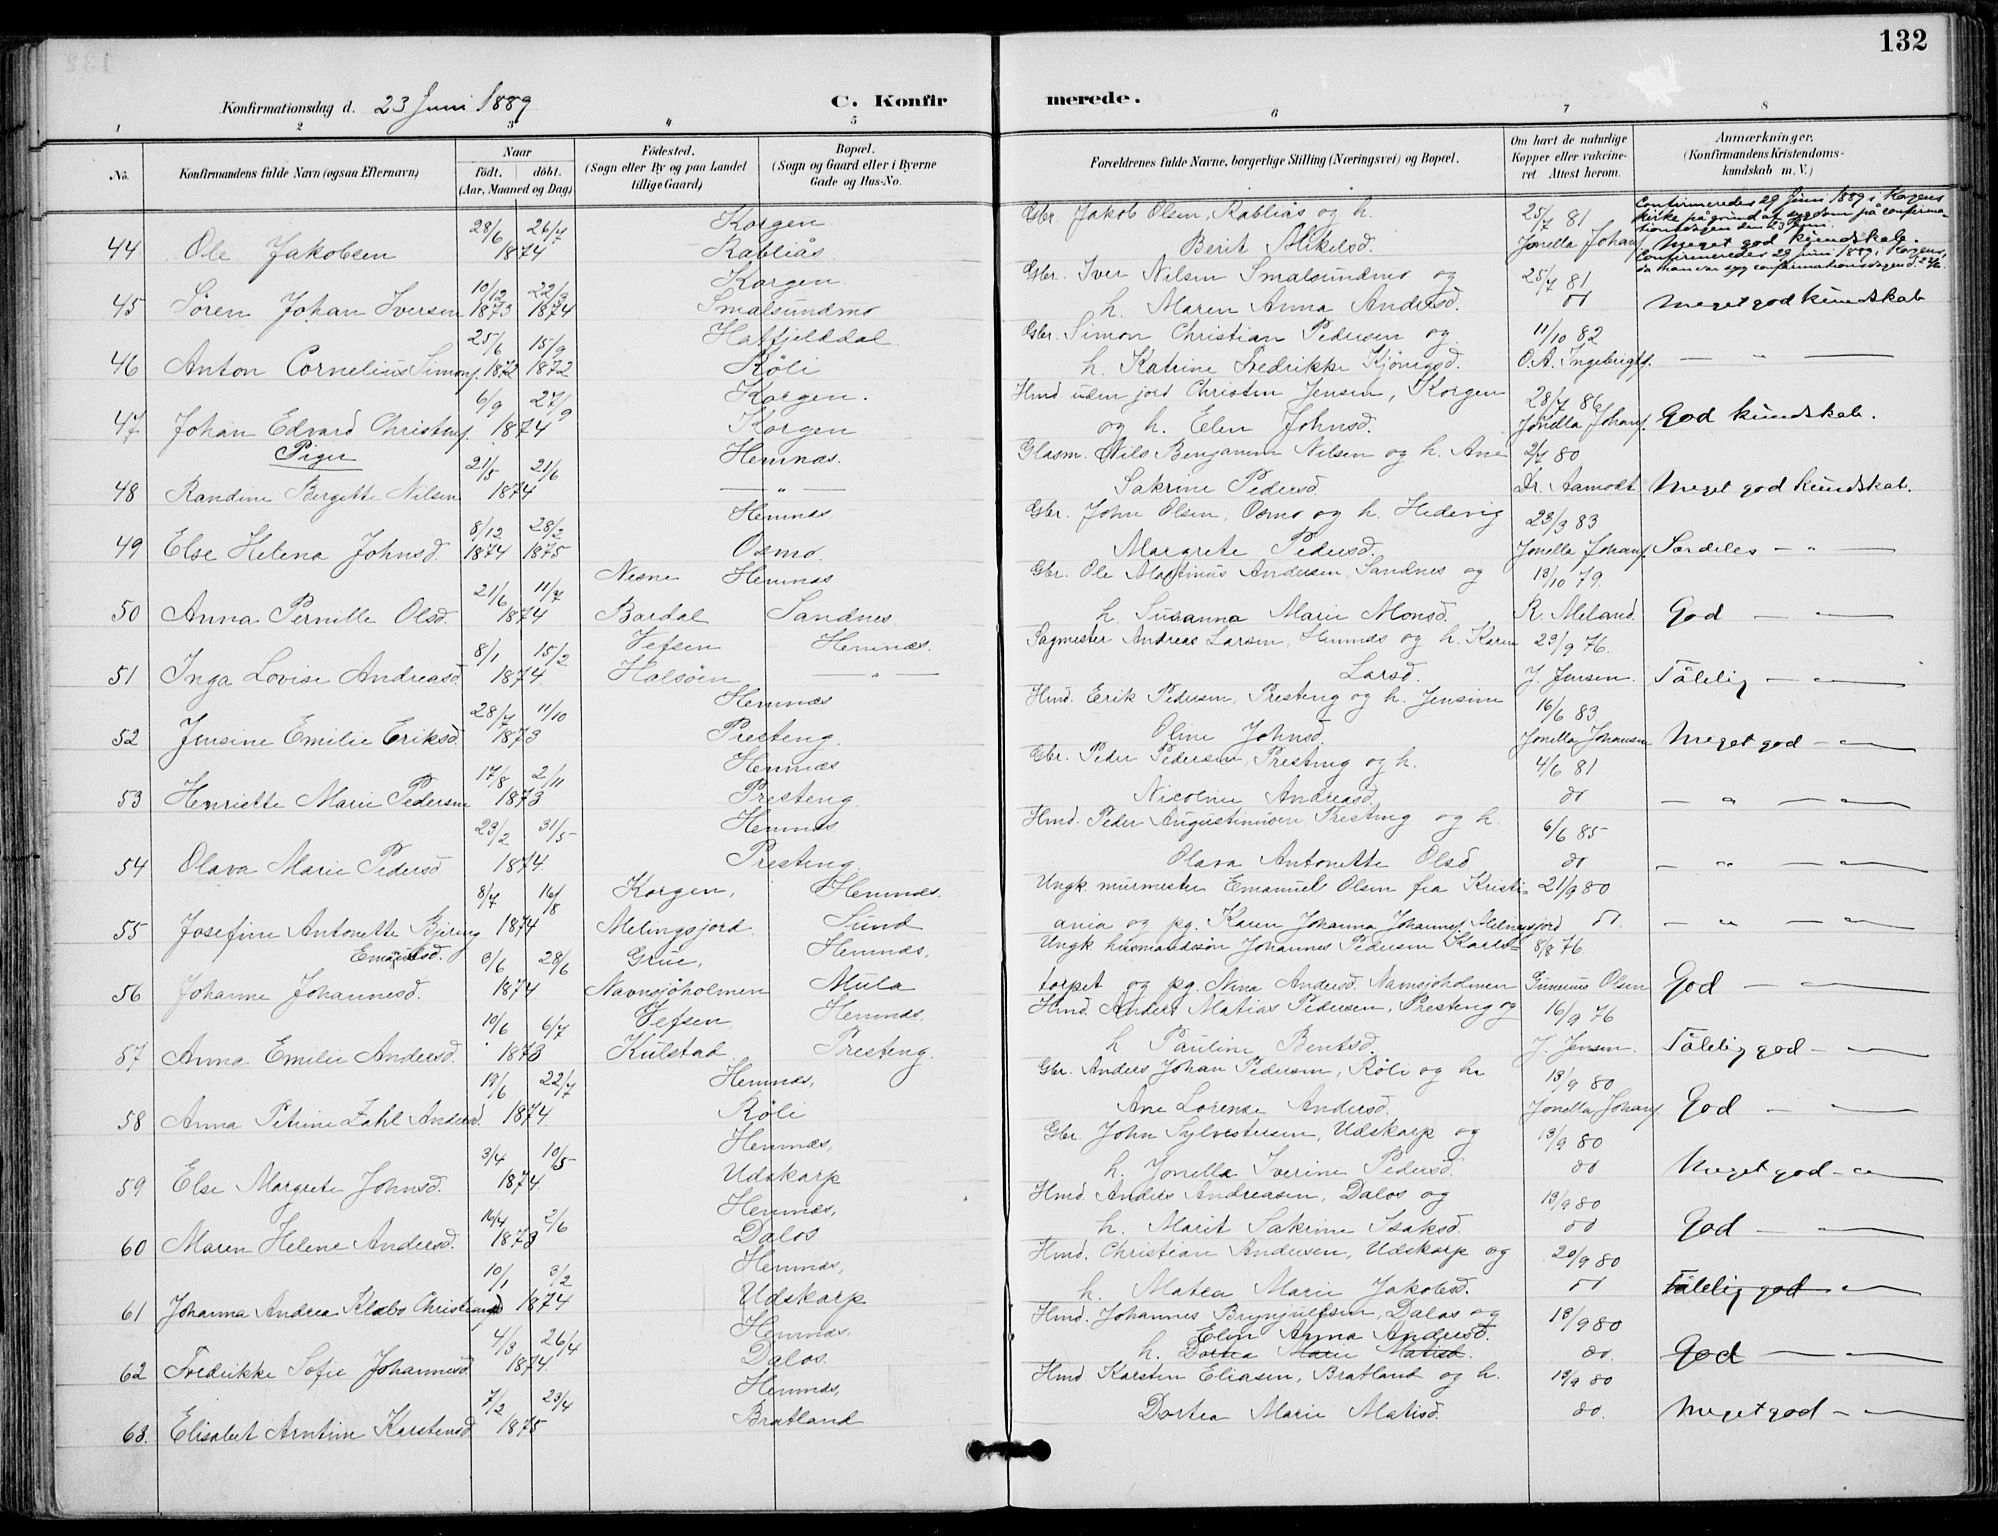 132
Konfirmationsdag d. 23 Juni 1889
C. Konfirmerede.
1 2 3 4 5 6 7 8
No. Konfirmandens fulde Navn (ogsaa Efternavn) Naar födt. döbt. (Aar, Maaned og Dag) Födested. (Sogn eller By og paa Landet tillige Gaard) Bopæl. (Sogn og Gaard eller i Byerne Gade og Hus-No. Forældrenes fulde Navne, borgerlige Stilling (Næringsvei) og Bopæl. Om havt de naturlige Kopper eller vakcineret. Attest herom. Anmærkninger. (Konfirmandens Kristendomskundskab m. V.)
28/6 26/7 Korgen Gbr. Jakob Olsen, Rabliås og h. 25/7 81 Confirmeredes 29 Juni 1889 i Korgens kirke på grund af sygdom på confirmationsdagen den 23 Juni.
44 Ole Jakobsen 1874 Rabliås. Berit Mikelsd. Jonella Johans. Meget god kundskab.
10/12 22/3 Korgen Gbr. Iver Nilsen Smalsundmo og 25/7 81 Confirmeredes 29 Juni 1889 i Korgens, da han var syg confirmationsdagen d. 23/6.
45 Sören Johan Iversen 1873 1874 Smalsundmo h. Maren Anna Andersd. do Meget god kundskab
25/6 15/9 Hatfjelddal. Gbr. Simon Christian Pedersen og 11/10 82
46 Anton Cornelius Simons. 1872 1872 Röli h. Katrine Fredrikke Kjönigsd. O. A. Ingebrigts. — " —
6/9 27/9 Korgen. Hmd. uden jord Christen Jensen, Korgen 28/7 86
47 Johan Edvard Christens. 1874 Korgen og h. Elen Johnsd. Jonella Johans. God kundskab.
Piger
21/5 21/6 Hemnæs. Glasm. Nils Benjamin Nilsen og h. Ane 2/7 80
48 Randine Bergitte Nilsen 1874 — " — Sakrine Pedersd. Dr. Aamodt Meget god kundskab.
8/12 28/2 Hemnæs Gbr. John Olsen, Osmo og h. Hedevig 23/3 83
49 Else Helena Johnsd. 1874 1875 Osmo. Margrete Pedersd. Jonella Johans. Særdeles — " —
21/6 11/7 Nesne Hemnæs Gbr. Ole Martinus Andersen, Sandnes og 13/10 79.
50 Anna Pernille Olsd. 1874 Bardal Sandnes h. Susanna Marie Monsd. R. Meland. God — " —
8/1 15/2 Vefsen Hemnæs. Sagmester Andreas Larsen, Hemnæs og h. Karen 23/9 76.
51 Inga Lovise Andreasd. 1874 Halsöen — " — Larsd. J. Jensen. Tålelig — " —
28/7 11/10 Hemnæs Hmd. Erik Pedersen, Presteng og h. Jensine 16/6 83
52 Jensine Emilie Eriksd. 1873 Presteng. Oline Johnsd. Jonella Johansen Meget god — " —
17/8 2/11 Hemnæs Gbr. Peder Pedersen, Presteng og h. 4/6 81
53 Henriette Marie Pedersen 1873 Presteng. Nicoline Andreasd. do — " — " —
23/2 31/5 Hemnæs Hmd. Peder Augustinusen Presteng og h. 6/6 85
54 Olava Marie Pedersd. 1874. Presteng. Olava Antonette Olsd. do — " — " —
8/7 16/8 Korgen, Hemnæs. Ungk. murmester Emanuel Olsen fra Kristi- 21/9 80
55 Josefine Antonette Bjering 1874 Melingsjord Sund ania og pg. Karen Johanna Johannes. Melingsjord do. — " — " —
Emanuelsd. 3/6 28/6 Grue, Hemnæs. Ungk. husmandssön Johannes Pedersen Karls- 8/8 76.
56 Johanne Johannesd. 1874 Navnsjöholmen Mula torpet og pg. Nina Andersd. Navnsjöholmen Gunerius Olsen God — " —
10/6 6/7 Vefsen, Hemnæs. Hmd. Anders Matias Pedersen, Presteng og 16/9 76
57 Anna Emilie Andersd. 1873 Kulstad. Presteng. h. Pauline Bentsd. J. Jensen. Tålelig god — " —
19/6 22/7 Hemnæs, Gbr. Anders Johan Pedersen, Röli og h. 13/9 80
58 Anna Petrine Zahl Andersd. 1874. Röli Ane Lorense Andersd. Jonella Johans. God — " —
3/4 10/5 Hemnæs, Gbr. John Sylvestersen, Udskarp og 13/9 80
59 Else Margrete Johnsd. 1874. Udskarp h. Jonella Iverine Pedersd. do Meget god — " —
16/4 2/6 Hemnæs, Hmd. Anders Andreasen, Dalos og 13/9 80
60 Maren Helene Andersd. 1873 Dalos h. Marit Sakrine Isaksd. do God — " —
10/1 3/2 Hemnæs, Hmd. Christian Andersen, Udskarp og 20/9 80
61 Johanna Andrea Klæbo Christiansd. 1874 Udskarp h. Matea Marie Jakobsd. do Tålelig god — " —
4/3 26/4 Hemnæs. Hmd. Johannes Brynjulfsen, Dalos og 13/9 80
Elen Anna Andersd.
62 Fredrikke Sofie Johannesd. 1874 Dalos. h. Dortea Marie Matisd. do. God — " —
7/2 23/4 Hemnæs, Hmd. Karsten Eliasen, Bratland og h. 13/9 80
63. Elisabet Arntine Karstensd. 1875 Bratland Dortea Marie Matisd. do. Meget god — " —